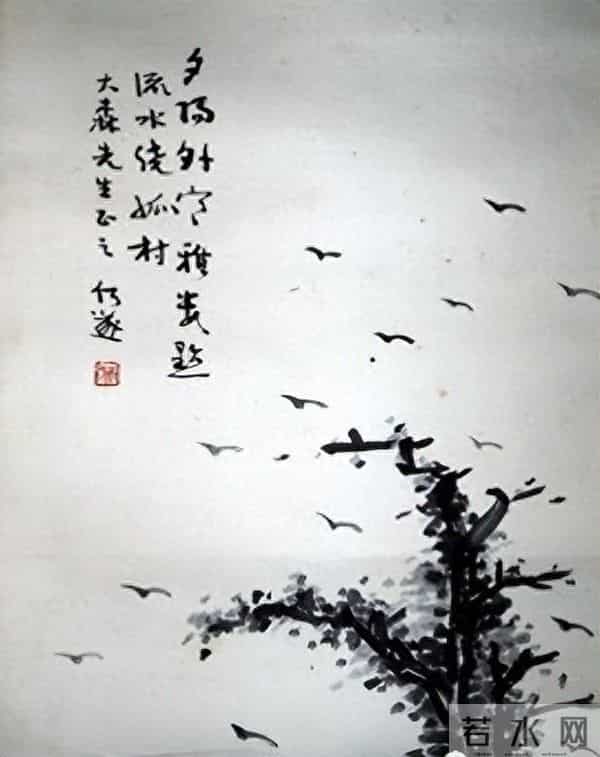 夕陽外寒雅數點
流水绕孤村
大森先生正之
何遂
若水网